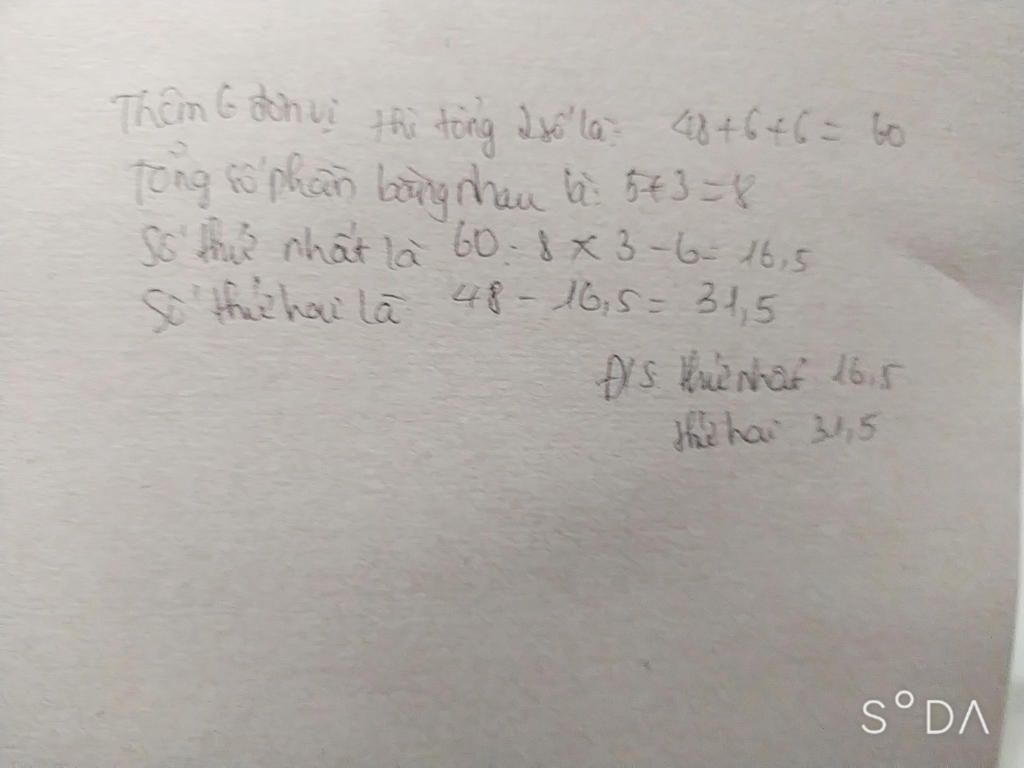 Thêm 6 đơn vị thì tổng 2 số là: 48+6+6= 60
Tổng số phần bằng nhau là: 5+3=8
Số thứ nhất là 60:8 x 3-6= 16,5
Số thứ hai là 48-16,5= 31,5
Đ/S thứ nhất 16,5
thứ hai 31,5
S°DA